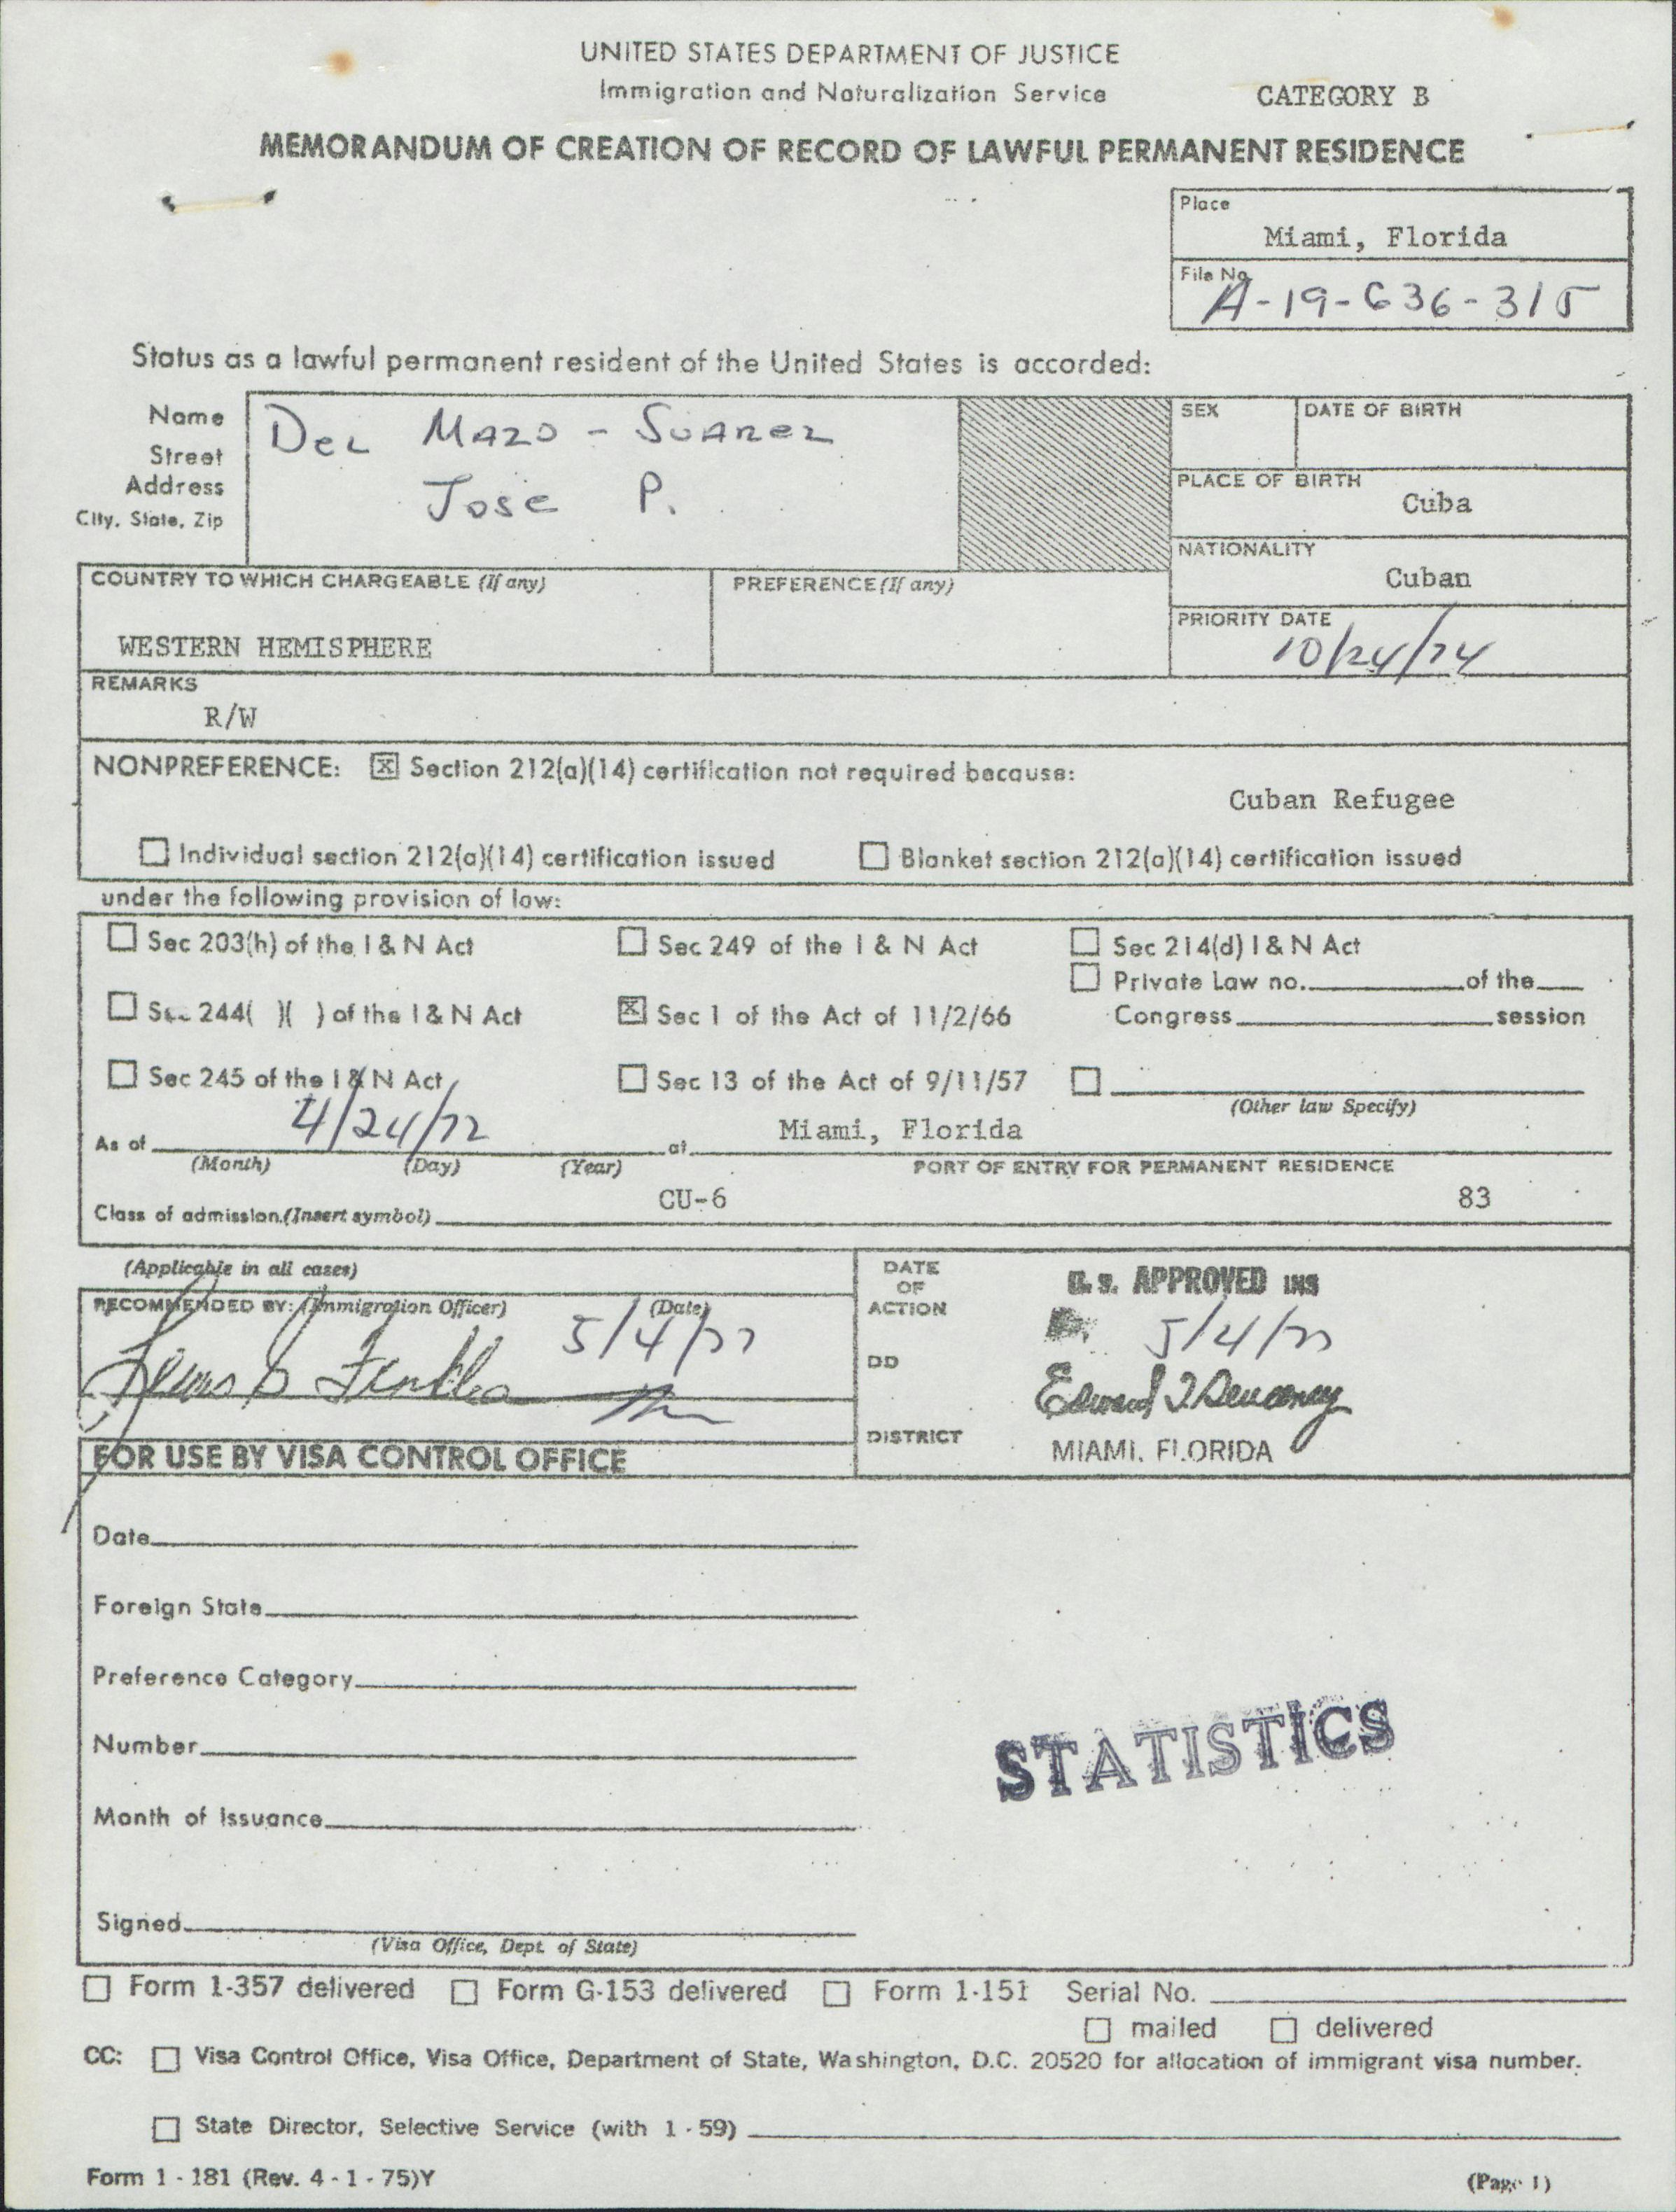 UNITED STATES DEPARTMENT OF JUSTICE
Immigration and Naturalization Service
CATEGORY B
MEMORANDUM OF CREATION OF RECORD OF LAWFUL PERMANENT RESIDENCE
Place
Miami, Florida
File No.
A-19-636-315
Status as a lawful permanent resident of the United States is accorded:
Name
Street
Address
City, State, Zip
DEL MAZO - SUAREZ
JOSE P.
SEX
DATE OF BIRTH
PLACE OF BIRTH
Cuba
NATIONALITY
Cuban
COUNTRY TO WHICH CHARGEABLE (If any)
WESTERN HEMISPHERE
PREFERENCE (If any)
PRIORITY DATE
10/24/74
REMARKS
R/W
NONPREFERENCE: [x] Section 212(a)(14) certification not required because:
Cuban Refugee
☐ Individual section 212(a)(14) certification issued ☐ Blanket section 212(a)(14) certification issued
under the following provision of law:
☐ Sec 203(h) of the I & N Act ☐ Sec 249 of the I & N Act ☐ Sec 214(d) I & N Act
☐ Private Law no. of the
☐ Sec 244( )( ) of the I & N Act [x] Sec 1 of the Act of 11/2/66 Congress session
☐ Sec 245 of the I & N Act ☐ Sec 13 of the Act of 9/11/57 ☐
(Other law Specify)
As of 4/24/72 at Miami, Florida
(Month) (Day) (Year) PORT OF ENTRY FOR PERMANENT RESIDENCE
Class of admission (Insert symbol) CU-6 83
(Applicable in all cases)
RECOMMENDED BY: (Immigration Officer) (Date)
5/4/77
DATE
OF
ACTION
DD
DISTRICT
U. S. APPROVED INS
5/4/77
MIAMI, FLORIDA
FOR USE BY VISA CONTROL OFFICE
Date
Foreign State
Preference Category
Number
Month of Issuance
Signed
(Visa Office, Dept. of State)
STATISTICS
☐ Form 1-357 delivered ☐ Form G-153 delivered ☐ Form 1-151 Serial No.
☐ mailed ☐ delivered
CC: ☐ Visa Control Office, Visa Office, Department of State, Washington, D.C. 20520 for allocation of immigrant visa number.
☐ State Director, Selective Service (with 1 - 59)
Form 1 - 181 (Rev. 4 - 1 - 75)Y
(Page 1)